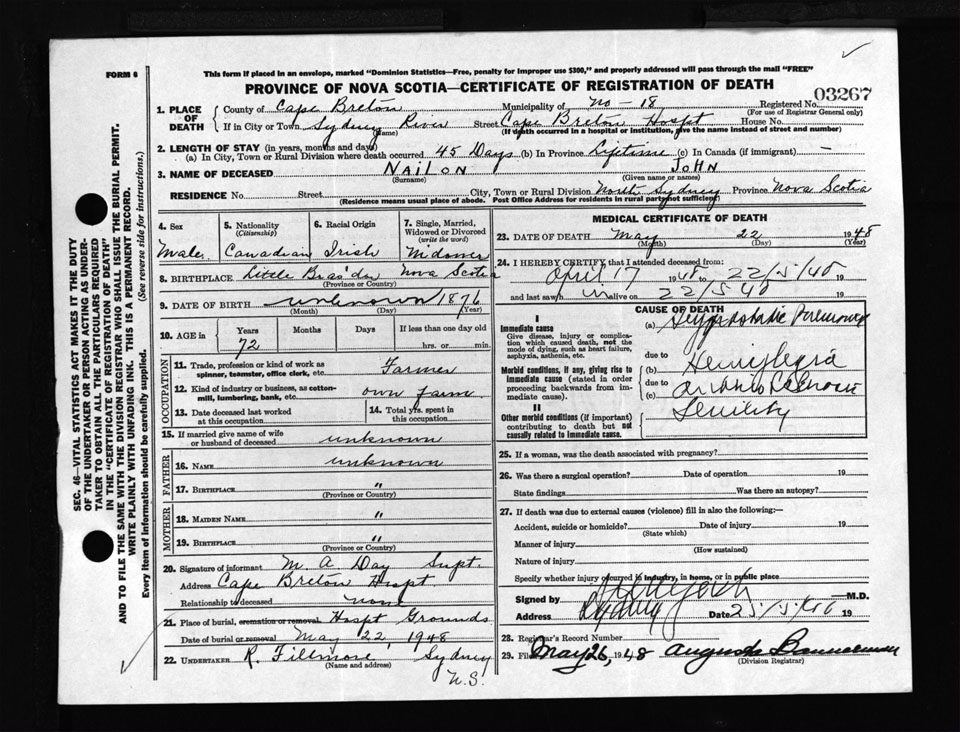 FORM 6
This form if placed in an envelope, marked "Dominion Statistics—Free, penalty for improper use $300," and properly addressed will pass through the mail "FREE"
PROVINCE OF NOVA SCOTIA—CERTIFICATE OF REGISTRATION OF DEATH
03267
1. PLACE OF DEATH
County of Cape Breton Municipality of No - 18 Registered No.
(For use of Registrar General only)
If in City or Town Sydney River Street Cape Breton Hospt House No.
(Name) (If death occurred in a hospital or institution, give the name instead of street and number)
2. LENGTH OF STAY (in years, months and days)
(a) In City, Town or Rural Division where death occurred 45 Days (b) In Province Lifetime (c) In Canada (if immigrant) —
3. NAME OF DECEASED NAILON JOHN
(Surname) (Given name or names)
RESIDENCE No. Street City, Town or Rural Division North Sydney Province Nova Scotia
(Residence means usual place of abode. Post Office Address for residents in rural parts not sufficient)
SEC. 46—VITAL STATISTICS ACT MAKES IT THE DUTY
OF THE UNDERTAKER OR PERSON ACTING AS UNDER-
TAKER TO OBTAIN ALL THE PARTICULARS REQUIRED
IN THE "CERTIFICATE OF REGISTRATION OF DEATH"
AND TO FILE THE SAME WITH THE DIVISION REGISTRAR WHO SHALL ISSUE THE BURIAL PERMIT.
WRITE PLAINLY WITH UNFADING INK. THIS IS A PERMANENT RECORD.
Every item of information should be carefully supplied. (See reverse side for instructions.)
4. Sex 5. Nationality (Citizenship) 6. Racial Origin 7. Single, Married, Widowed or Divorced (write the word)
Male Canadian Irish Widower
8. BIRTHPLACE Little Bras d'or Nova Scotia
(Province or Country)
9. DATE OF BIRTH unknown 1876
(Month) (Day) (Year)
10. AGE in Years Months Days If less than one day old
72 hrs. or min.
OCCUPATION
11. Trade, profession or kind of work as spinner, teamster, office clerk, etc. Farmer
12. Kind of industry or business, as cotton-mill, lumbering, bank, etc. own farm
13. Date deceased last worked at this occupation
14. Total yrs. spent in this occupation
15. If married give name of wife or husband of deceased unknown
FATHER
16. NAME unknown
17. BIRTHPLACE "
(Province or Country)
MOTHER
18. MAIDEN NAME "
19. BIRTHPLACE "
(Province or Country)
20. Signature of informant M. A. Day Supt.
Address Cape Breton Hospt
Relationship to deceased none
21. Place of burial, cremation or removal Hospt Grounds
Date of burial or removal May 22, 1948
22. UNDERTAKER R. Fillmore, Sydney
(Name and address)
N.S.
MEDICAL CERTIFICATE OF DEATH
23. DATE OF DEATH May 22 1948
(Month) (Day) (Year)
24. I HEREBY CERTIFY that I attended deceased from:
April 17 1948 to 22/5/48 19
and last saw h im alive on 22/5/48 19
CAUSE OF DEATH
I
Immediate cause
Give disease, injury or complication which caused death, not the mode of dying, such as heart failure, asphyxia, asthenia, etc.
(a)
due to
Morbid conditions, if any, giving rise to immediate cause (stated in order proceeding backwards from immediate cause).
(b) Hemiplegia
due to
(c)
II
Other morbid conditions (if important) contributing to death but not causally related to immediate cause.
Senility
25. If a woman, was the death associated with pregnancy?
26. Was there a surgical operation? Date of operation 19
State findings Was there an autopsy?
27. If death was due to external causes (violence) fill in also the following:—
Accident, suicide or homicide? Date of injury 19
(State which)
Manner of injury
(How sustained)
Nature of injury
Specify whether injury occurred in industry, in home, or in public place
Signed by M.D.
Address Sydney Date 19
28. Registrar's Record Number
29. Filed May 26, 1948 Augusta Bannerman
(Division Registrar)